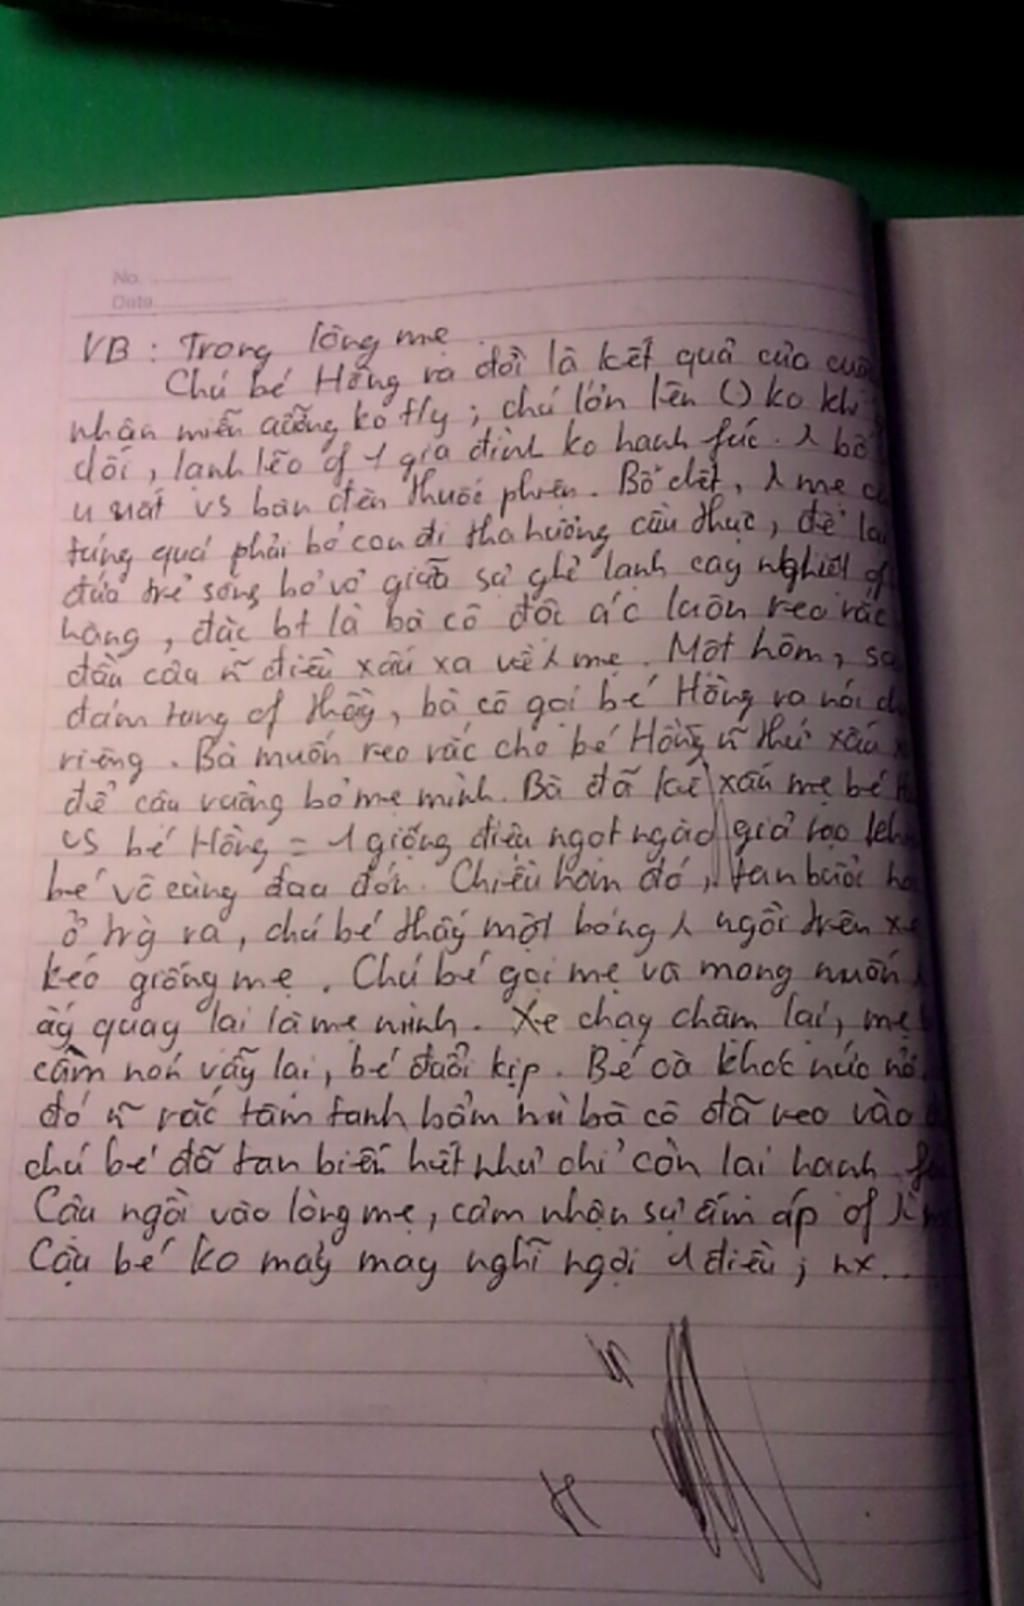 No.
Date
VB : Trong lòng mẹ
Chú bé Hồng ra đời là kết quả của
nhân miễn cưỡng ko fly ; chú lớn lên () ko khí
dối, lạnh lẽo of 1 gia đình ko hạnh fúc. λ bố
u uất vs bàn đèn thuốc phiện. Bố chết, λ mẹ
túng quá phải bỏ con đi tha hương cầu thực, để lại
đứa trẻ sống bơ vơ giữa sự ghẻ lạnh cay nghiệt of
hàng, đặc bt là bà cô độc ác luôn reo rắc
đầu cậu ñ điều xấu xa về λ mẹ. Một hôm,
đám tang of thầy, bà cô gọi bé Hồng ra nói
riêng. Bà muốn reo rắc cho bé Hồng ñ thứ xấu
để cậu ruồng bỏ mẹ mình. Bà đã kể xấu mẹ bé
vs bé Hồng = 1 giống điệu ngọt ngào giả tạo
bé vô cùng đau đớn. Chiều hôm đó, tan buổi
ở trg ra, chú bé thấy một bóng λ ngồi trên xe
kéo giống mẹ. Chú bé gọi mẹ và mong muốn
ấy quay lại là mẹ mình. Xe chạy chậm lại, mẹ
cầm nón vẫy lại, bé đuổi kịp. Bé oà khóc nức nở.
đó ñ rắc tâm tanh bẩm mà bà cô đã reo vào
chú bé đã tan biến hết như chỉ còn lại hạnh
Cậu ngồi vào lòng mẹ, cảm nhận sự ấm áp of λ
Cậu bé ko mảy may nghĩ ngợi 1 điều ; nx...